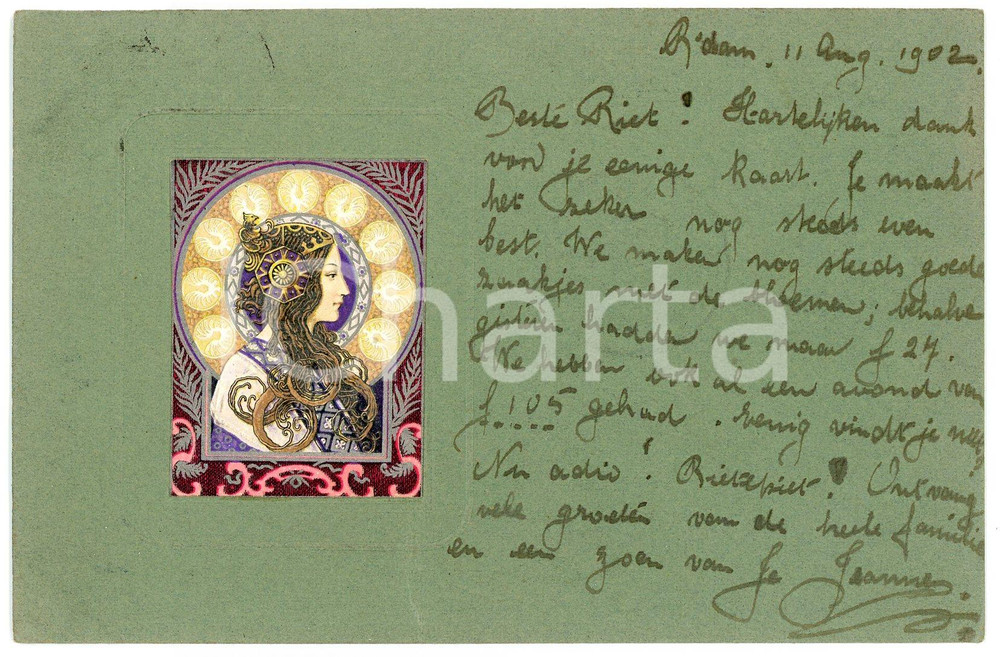 R'dam, 11 Aug. 1902.
Beste Riet! Hartelijken dank
voor je eenige kaart. Je maakt
het zeker nog steeds even
best. We maken nog steeds goede
zaakjes met de bloemen; behalve
gisteren hadden we maar f 27.
We hebben ook al een avond van
f. 105 gehad. eenig vindt je niet
Nu adio! Rietepiet! Ontvang
vele groeten van de heele familie
en een zoen van Je Jeanne.
marta